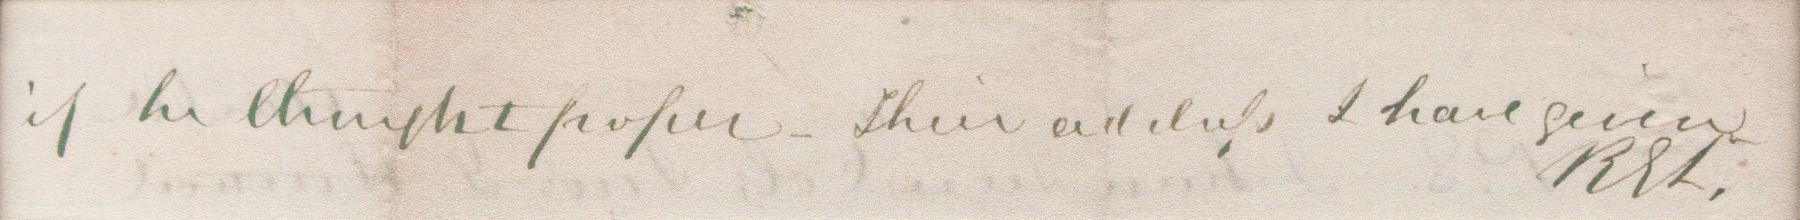 if he thought proper – Their address I have given
REL.